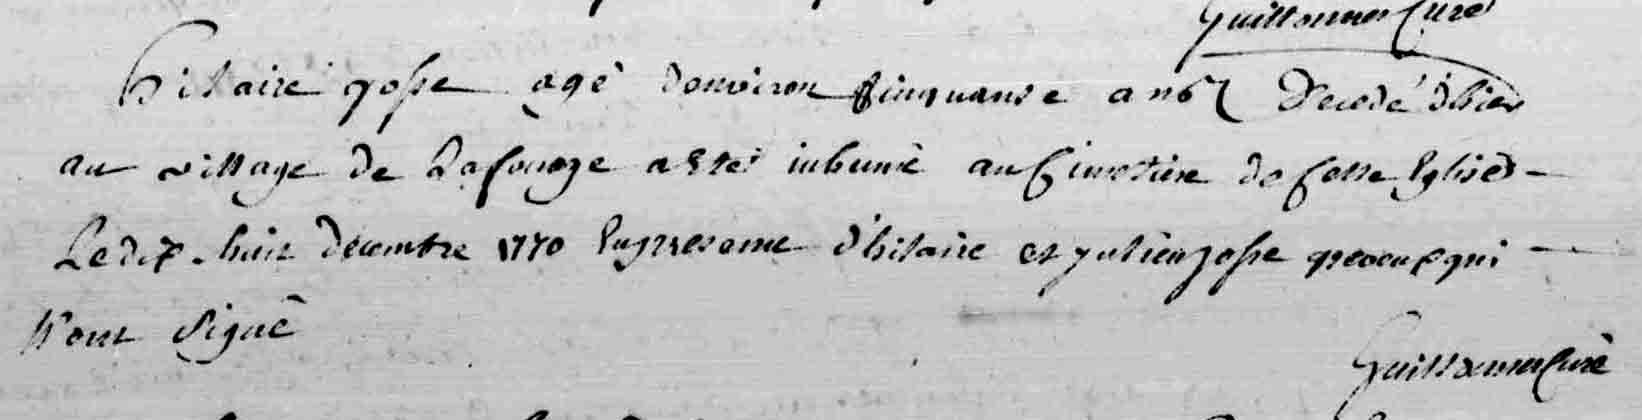 Guillonnet Curé
hilaire josse agé denviron cinquante ans Decedé d'hier
au village de Lafouge a esté inhumé au Cimetiere de Cette Eglise
Le dix-huit decembre 1770 En presence d'hilaire et julien josse
n'ont signé
Guillonnet Curé